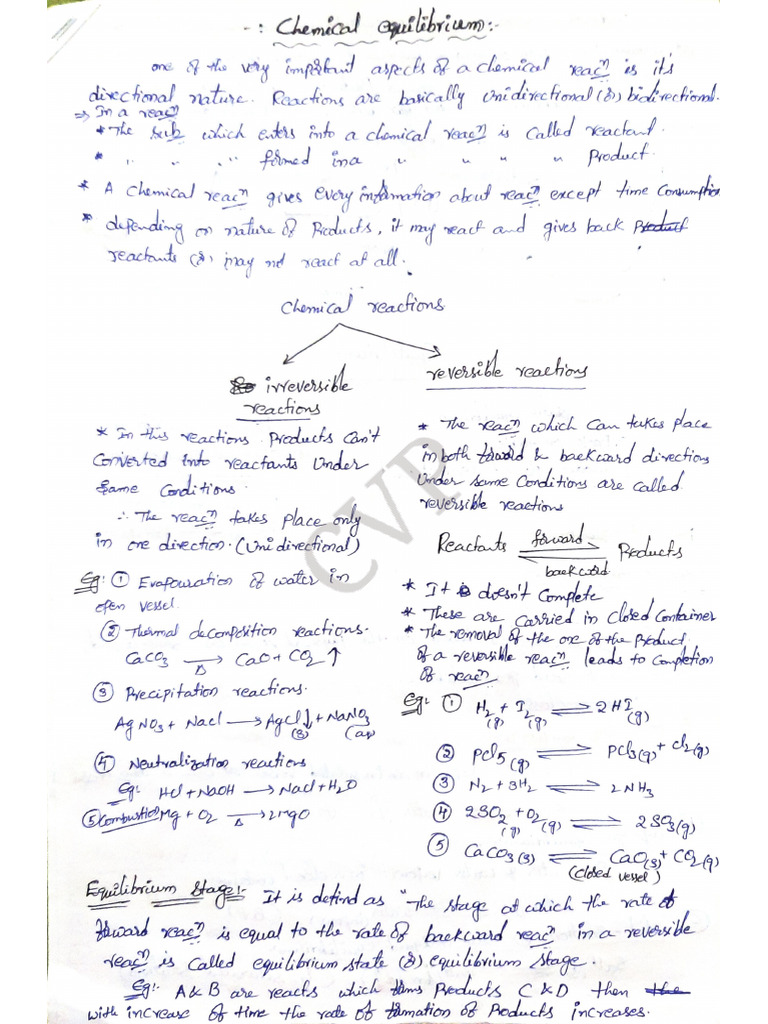 -: Chemical equilibrium:-
one of the very important aspects of a chemical reacn is it's
directional nature. Reactions are basically unidirectional (or) bidirectional.
⇒ In a reacn
* The sub which enters into a chemical reacn is called reactant.
* " " " formed in a " " " " Product.
* A chemical reacn gives every information about reacn except time consumption
* depending on nature of Products, it may react and gives back Product
reactants (or) may not react at all.
Chemical reactions
irreversible
reactions
* In this reactions Products can't
converted into reactants under
same conditions.
∴ The reacn takes place only
in one direction. (Unidirectional)
Eg: ① Evapouration of water in
open vessel.
② Thermal decompsition reactions.
CaCO3 →Δ CaO + CO2 ↑
③ Precipitation reactions.
AgNO3 + Nacl → AgCl↓(s) + NaNO3 (aq)
④ Neutralization reactions
Eg: Hcl + NaOH → Nacl + H2O
⑤ Combustion Mg + O2 →Δ 2MgO
reversible reactions
* The reacn which can takes place
in both forward & backward directions
under same conditions are called
reversible reactions
Reactants forward ⇌ backword Products
* It doesn't complete
* These are carried in closed container
* The removal of the one of the product
of a reversible reacn leads to completion
of reacn
Eg: ① H2(g) + I2(g) ⇌ 2HI(g)
② pcl5(g) ⇌ pcl3(g) + cl2(g)
③ N2 + 3H2 ⇌ 2NH3
④ 2SO2(g) + O2(g) ⇌ 2SO3(g)
⑤ CaCO3(s) ⇌ CaO(s) + CO2(g)
(closed vessel)
Equilibrium Stage:- It is defind as "The stage at which the rate of
forward reacn is equal to the rate of backward reacn in a reversible
reacn is called equilibrium state (or) equilibrium stage.
Eg:- A & B are reacts which forms Products C & D then the
with increase of time the rate of formation of Products increases.
CVP